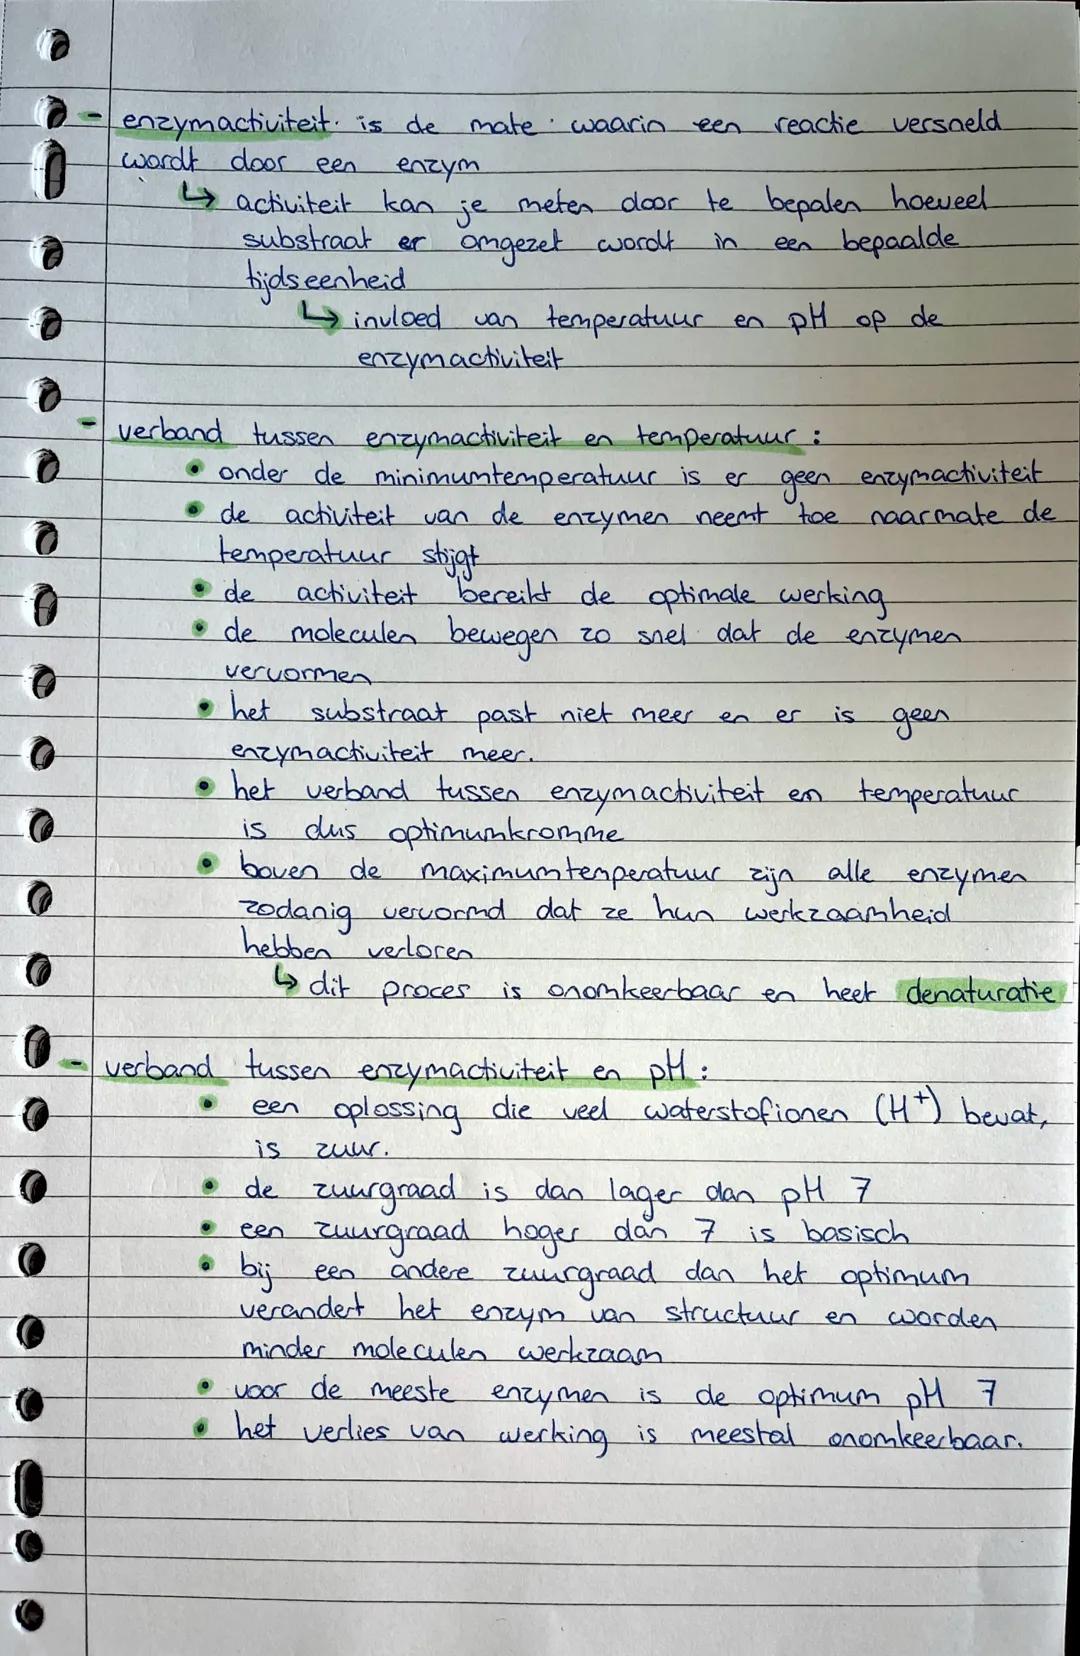 - enzymactiviteit is de mate waarin een reactie versneld
wordt door een enzym
↳ activiteit kan je meten door te bepalen hoeveel
substraat er omgezet wordt in een bepaalde
tijdseenheid
↳ invloed van temperatuur en pH op de
enzymactiviteit
- verband tussen enzymactiviteit en temperatuur :
• onder de minimumtemperatuur is er geen enzymactiviteit
• de activiteit van de enzymen neemt toe naarmate de
temperatuur stijgt
• de activiteit bereikt de optimale werking
• de moleculen bewegen zo snel dat de enzymen
vervormen
• het substraat past niet meer en er is geen
enzymactiviteit meer.
• het verband tussen enzymactiviteit en temperatuur
is dus optimumkromme
• boven de maximumtemperatuur zijn alle enzymen
zodanig vervormd dat ze hun werkzaamheid
hebben verloren
↳ dit proces is onomkeerbaar en heet denaturatie
- verband tussen enzymactiviteit en pH :
• een oplossing die veel waterstofionen (H⁺) bevat,
is zuur.
• de zuurgraad is dan lager dan pH 7
• een zuurgraad hoger dan 7 is basisch
• bij een andere zuurgraad dan het optimum
verandert het enzym van structuur en worden
minder moleculen werkzaam
• voor de meeste enzymen is de optimum pH 7
• het verlies van werking is meestal onomkeerbaar.